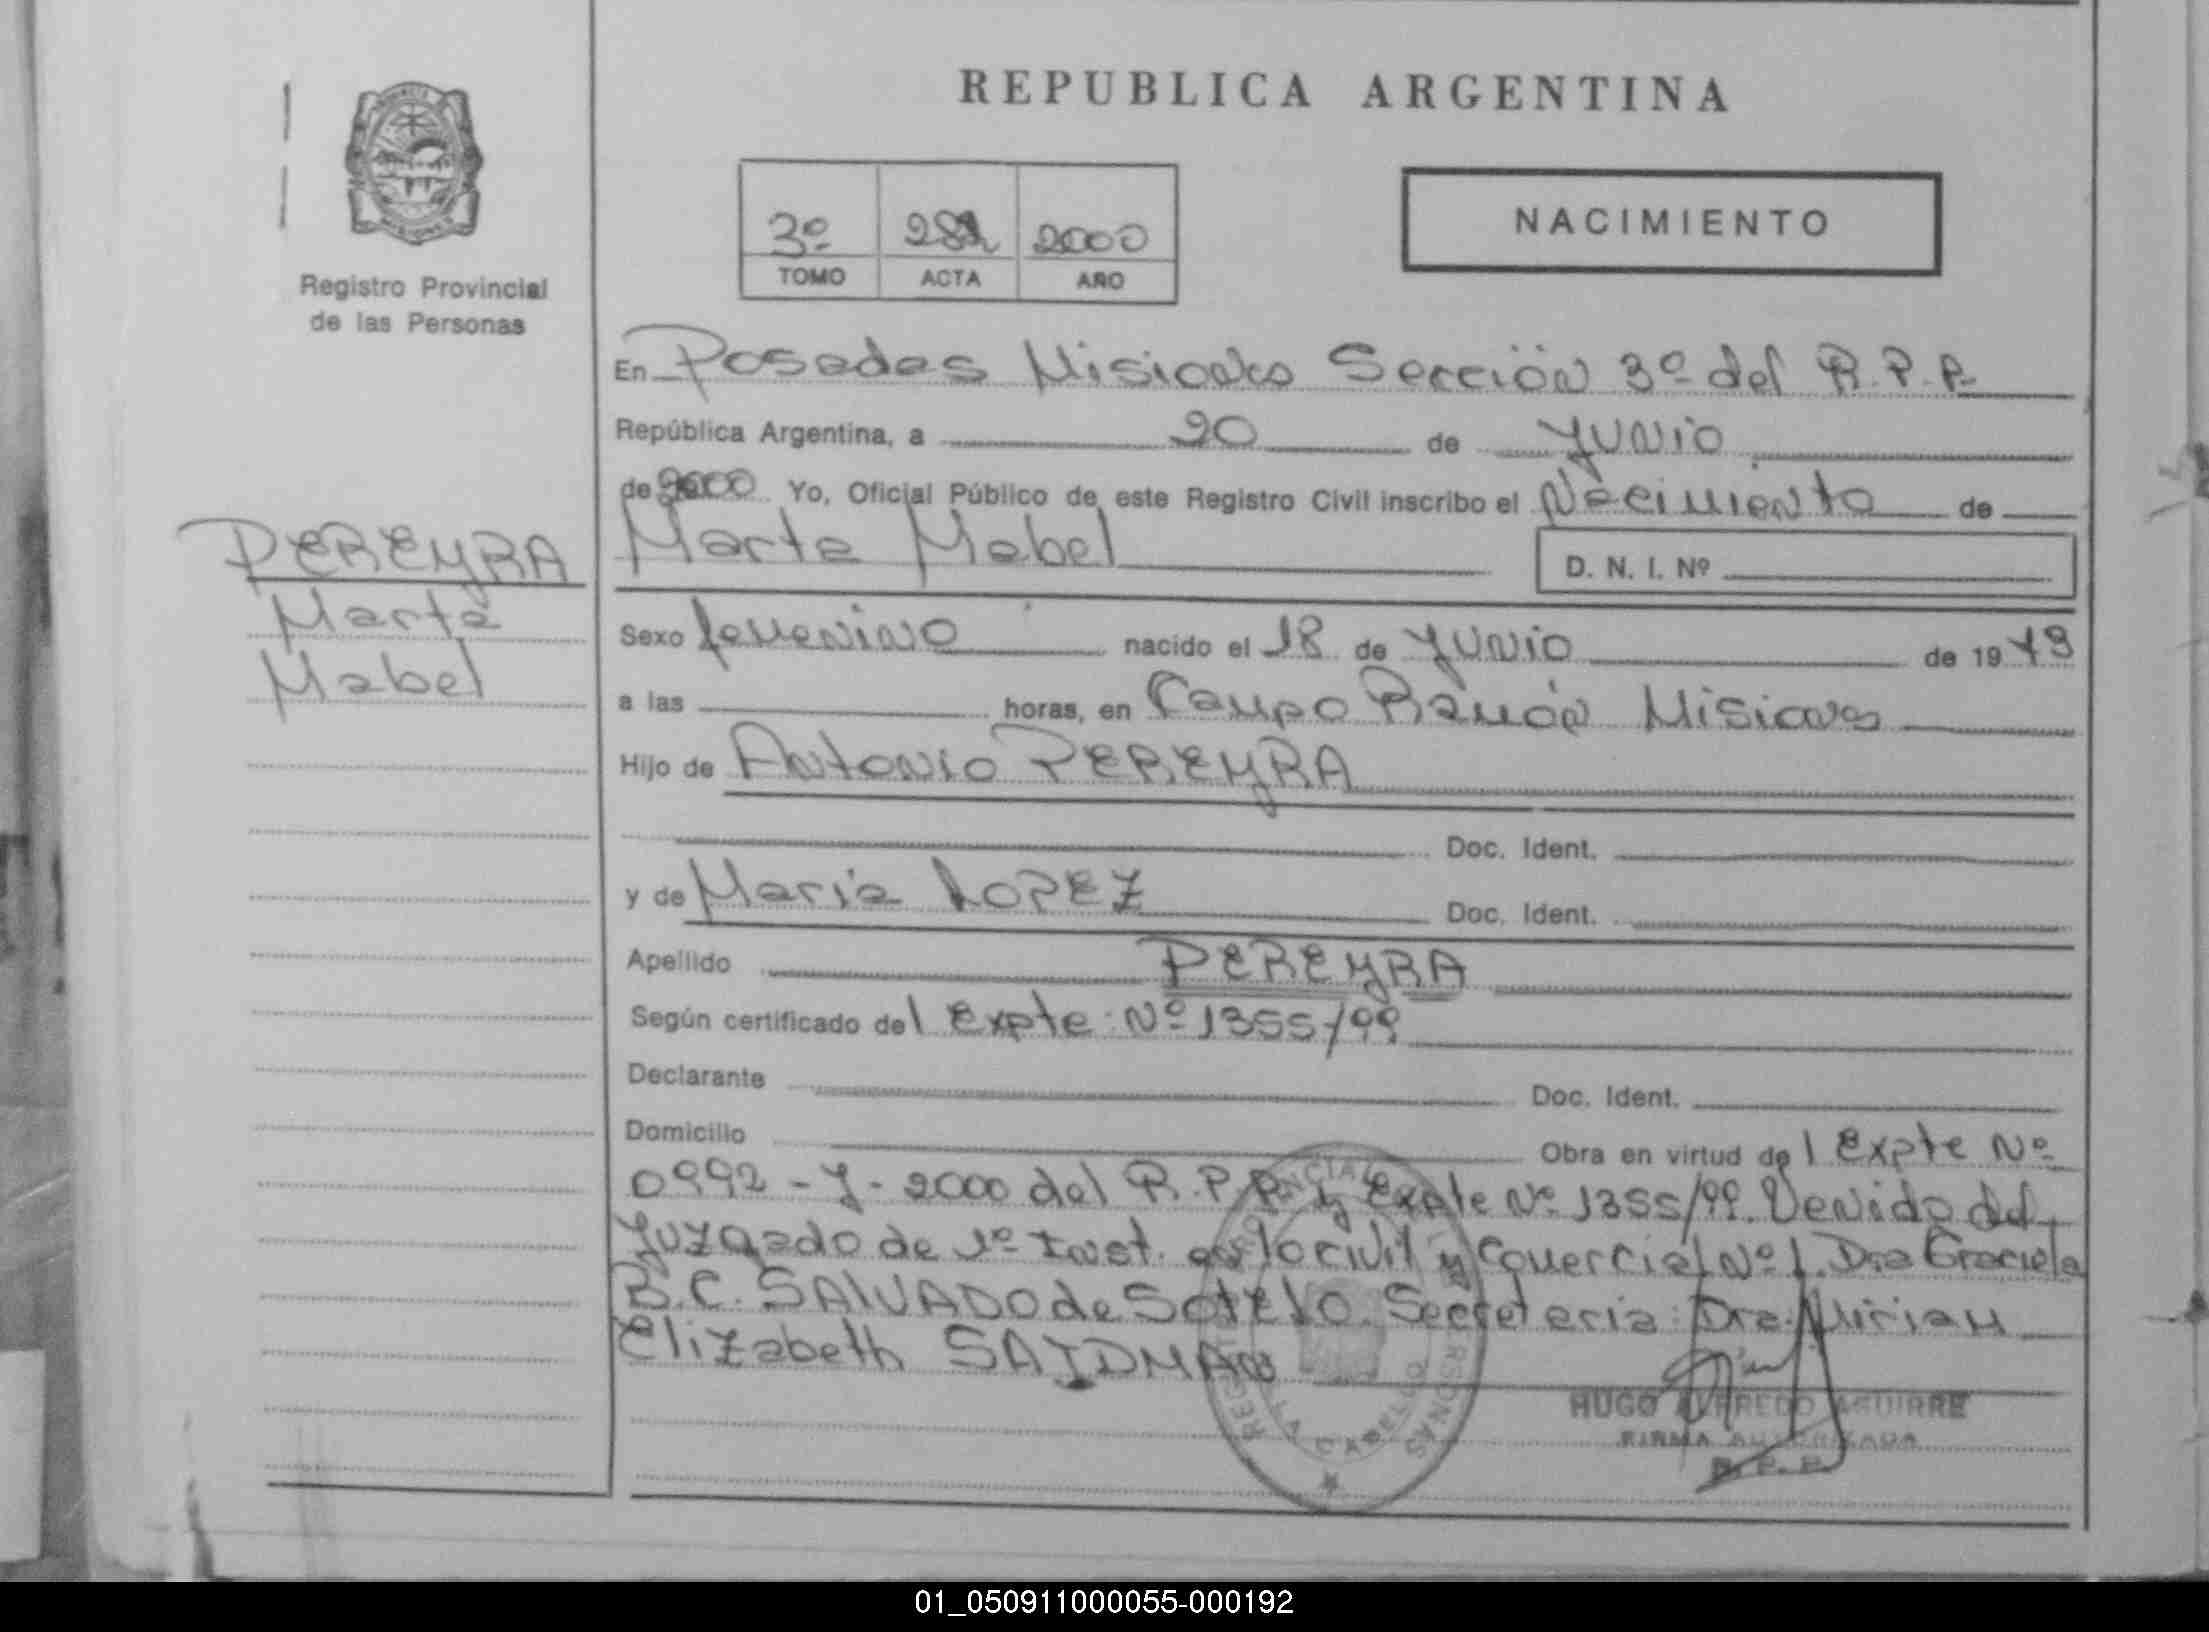 REPUBLICA ARGENTINA
Registro Provincial
de las Personas
3º 2000
TOMO ACTA AÑO
NACIMIENTO
En Posadas Misiones Sección 3º del R.P.P.
República Argentina, a 20 de Junio
de 2000 Yo, Oficial Público de este Registro Civil inscribo el Nacimiento de
Marta Mabel
D. N. I. Nº
PEREYRA
Marta
Mabel
Sexo femenino nacido el 18 de Junio de 1973
a las horas, en Campo Ramón Misiones
Hijo de Antonio PEREYRA
Doc. Ident.
y de María LOPEZ Doc. Ident.
Apellido PEREYRA
Según certificado del Expte Nº 1355/99
Declarante Doc. Ident.
Domicilio Obra en virtud del Expte Nº
0992-J-2000 del R.P.P. y Expte Nº 1355/99. Venido del
Juzgado de 1º Inst. en lo Civil y Comercial Nº 1. Dra Graciela
B.C. SALVADO de SOTELO. Secretaria: Dra. Miriam
Elizabeth SAIDMAN
HUGO ALFREDO AGUIRRE
FIRMA AUTORIZADA
R.P.P.
01_050911000055-000192